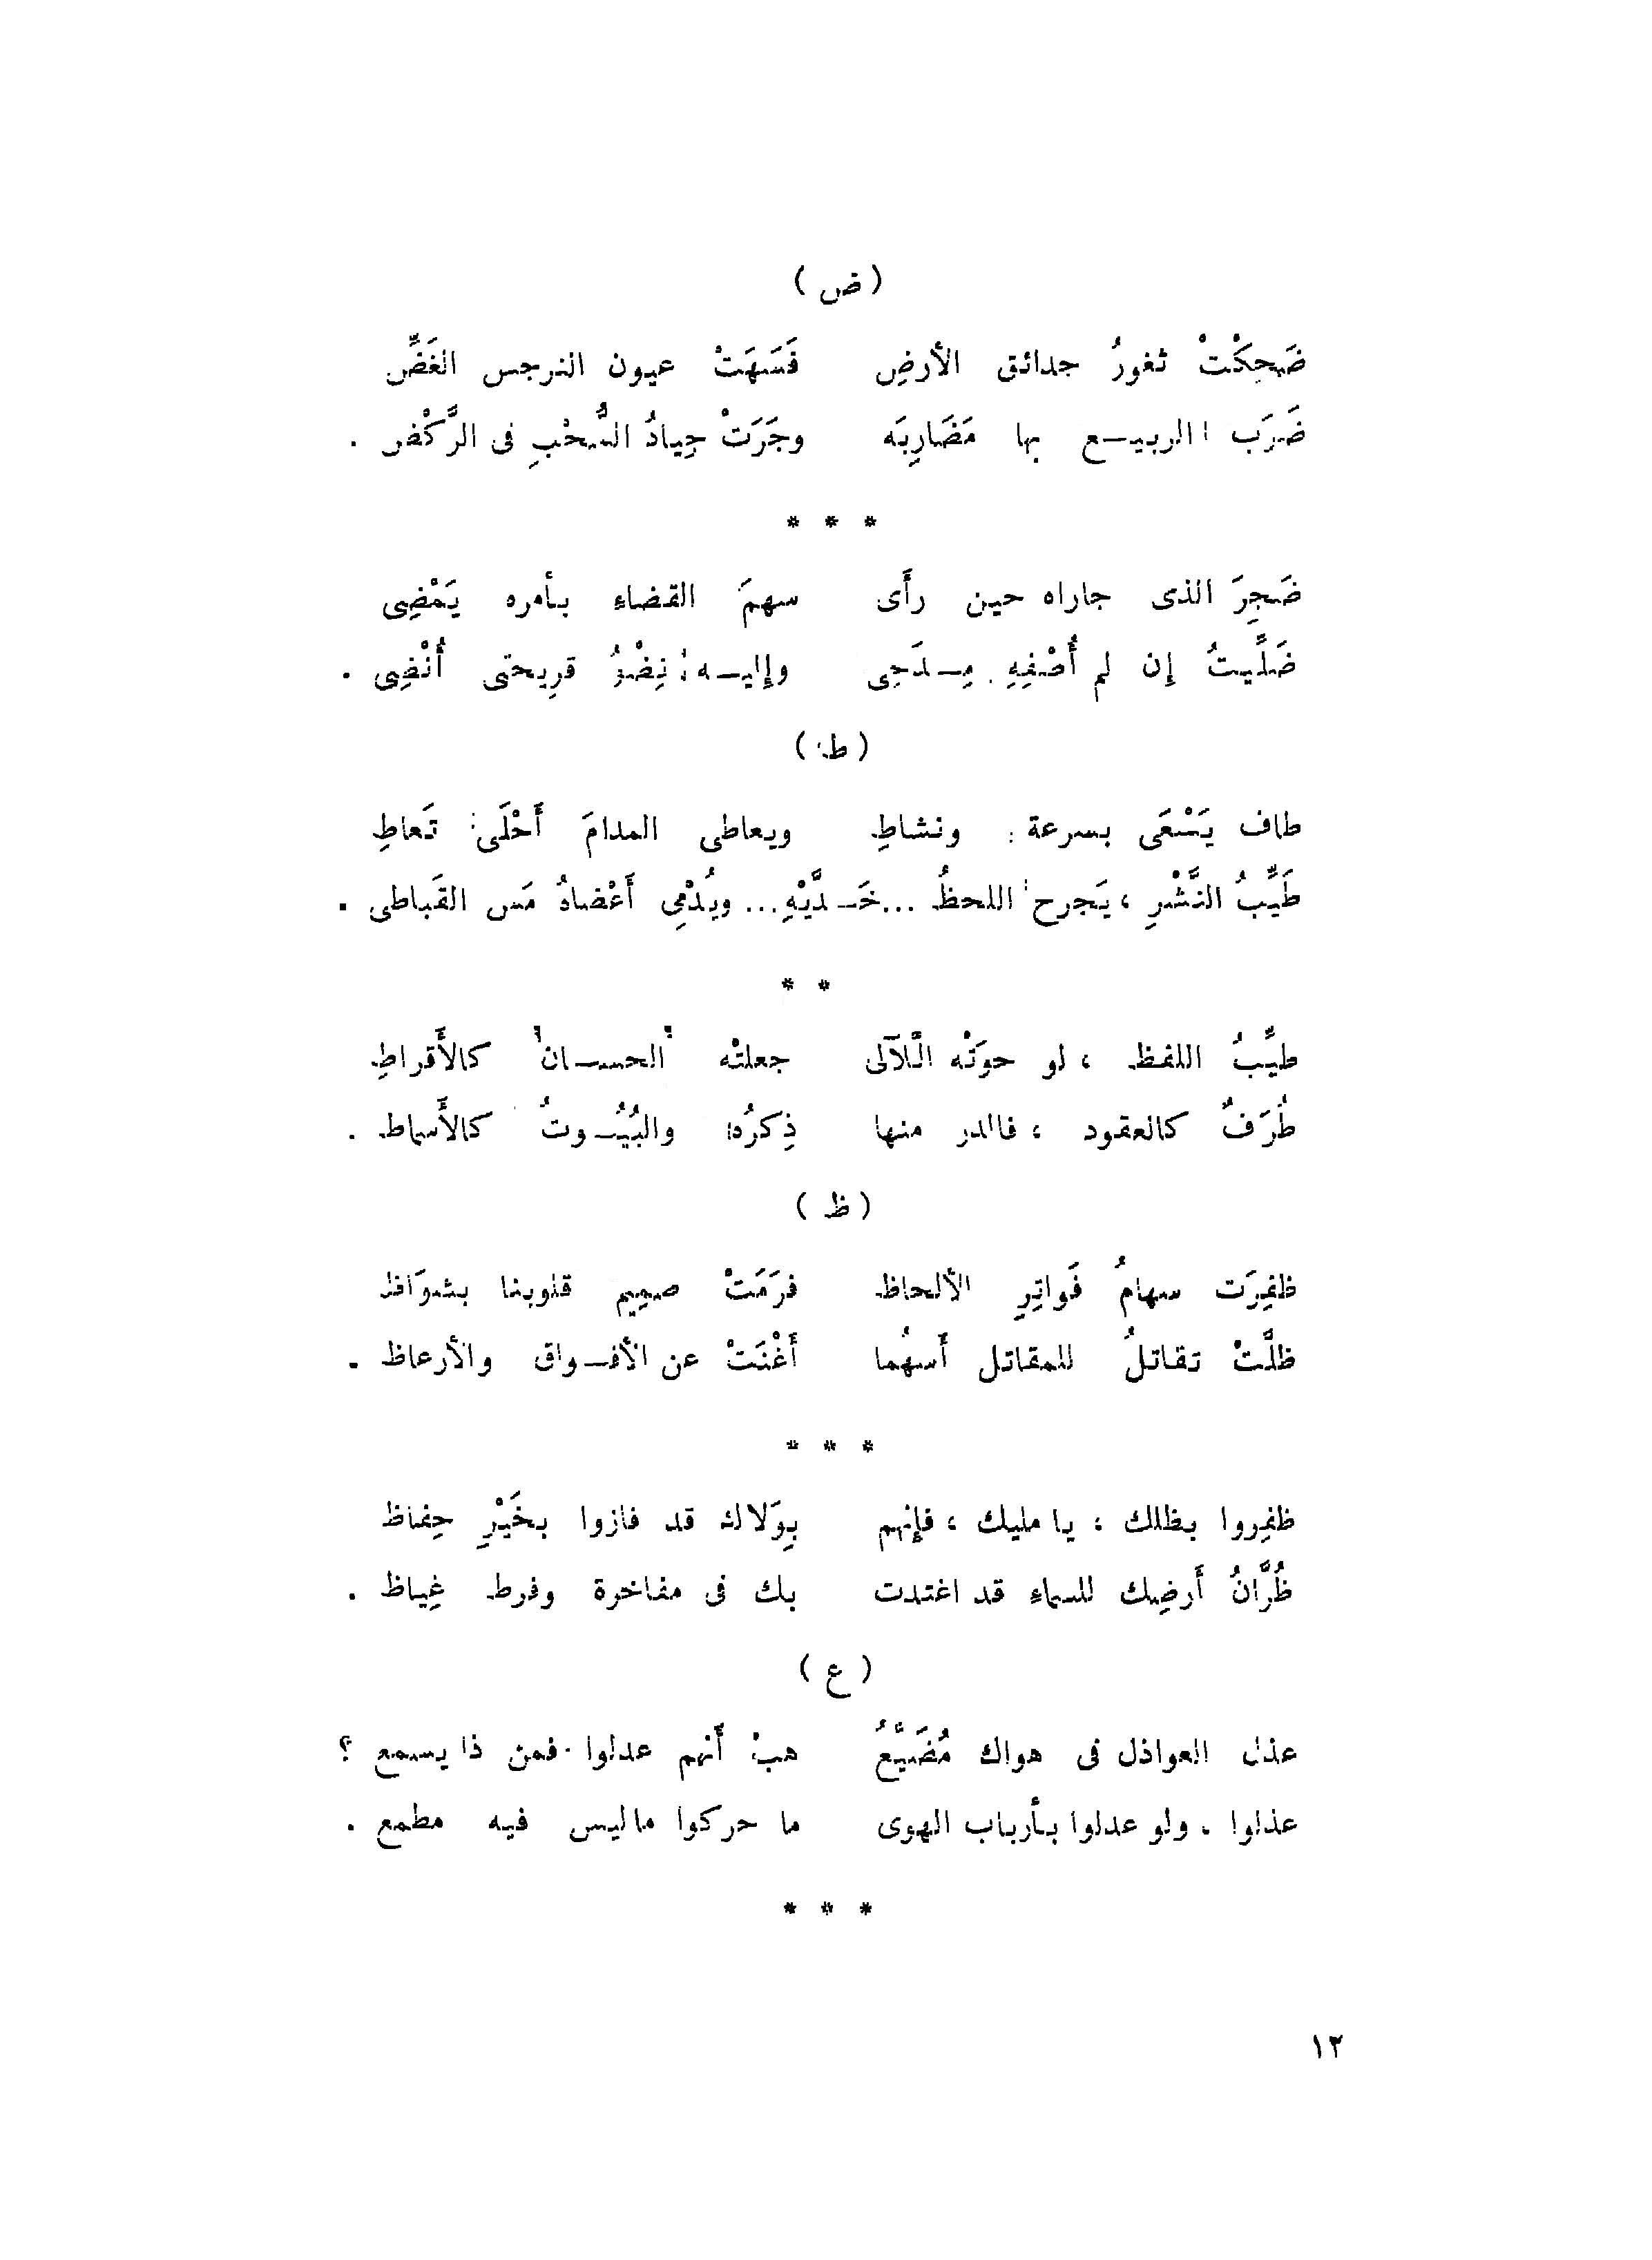 ( ض )
ضَحِكْتْ ثغورُ حدائق الأرضِ فَسَهَتْ عيون النرجس الغَضِّ
ضَرَب الربيـع بها مَضَارِبَه وجَرَتْ جِيادُ السُّحْبِ فى الرَّكْض .
* * *
ضَجِرَ الذى جاراه حين رأَى سهمَ القضاء بأمره يَمْضِى
ضَلَّيتُ إن لم أُصْفِهِ مِـدَحِى وإليـه نِضْوُ قرِيحتى أُنْضِى .
( ط )
طاف يَسْعَى بسرعة ونشاطِ ويعاطى المدامَ أَحْلَى تَعاطِ
طَيِّبُ النَّشْرِ ، يَجرح اللحظُ ... خَـدَّيْهِ ... ويُدْمِى أَعْضاهُ مَس القَباطى .
* *
طيِّبُ اللفظ ، لو حوَتْه الَّلآلى جعلتْه الحسـان كالأَقراطِ
طُرَفٌ كالعقود ، فالدر منها ذِكرُه والبُيُـوتُ كالأَسماط .
( ظ )
ظفِرَت سهامُ فَواتِرِ الألحاظ فرَمَتْ صميم قلوبنا بشوَاظ
ظلَّتْ تقاتلُ للمقاتل أَسهُما أَغْنَتْ عن الأفـواق والأرعاظ .
* * *
ظفِروا بظلك ، يا مليك ، فإنهم بِوَلاك قد فازوا بخَيْرِ حِفاظ
ظُرَّانُ أَرضِك للسماءِ قد اغتدت بك فى مفاخرة وفرط غِياظ .
( ع )
عذل العواذل فى هواك مُضَيَّعُ هبْ أَنهم عدلوا فمن ذا يسمع ؟
عذلوا . ولو عدلوا بأرباب الهوى ما حركوا ماليس فيه مطمع .
* * *
١٢